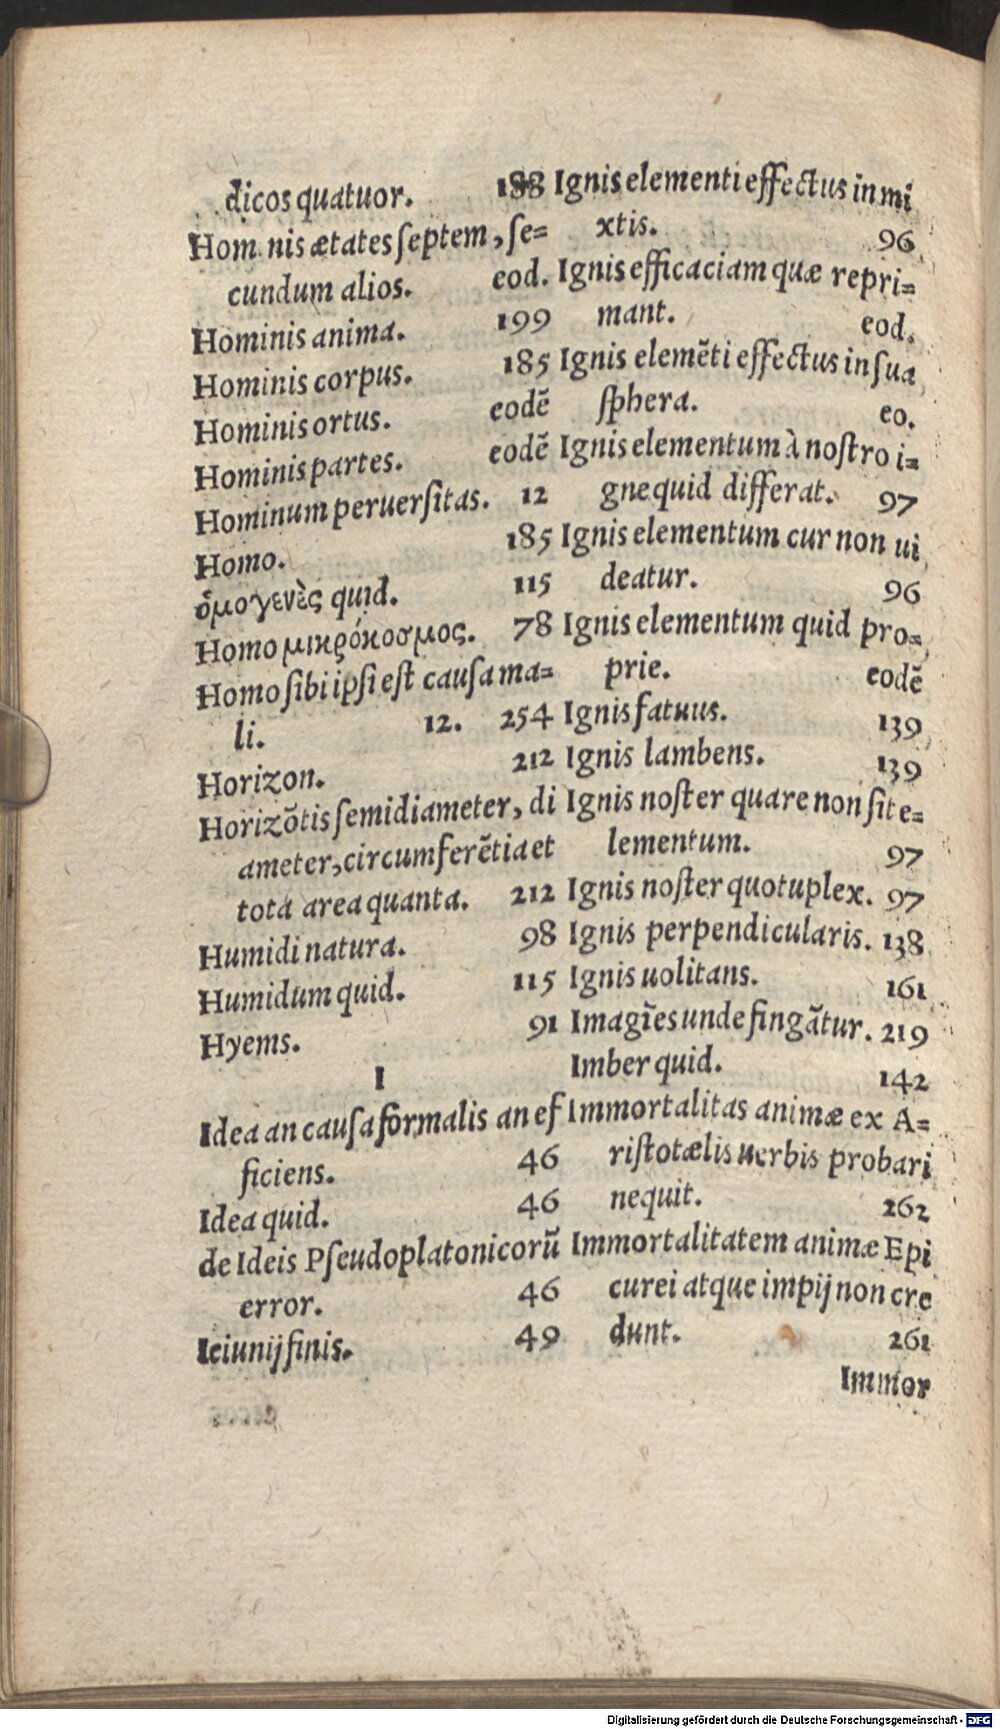 dicos quatuor. 188
Hom nis ætates ſeptem, ſe=
cundum alios. eod.
Hominis anima. 199
Hominis corpus. 185
Hominis ortus. eodẽ
Hominis partes. eodẽ
Hominum peruerſitas. 12
Homo. 185
ὁμογενὲς quid. 115
Homo μικρόκοσμος. 78
Homo ſibi ipſi eſt cauſa ma=
li. 12. 254
Horizon. 212
Horizõtis ſemidiameter, di
ameter, circumferẽtia et
tota area quanta. 212
Humidi natura. 98
Humidum quid. 115
Hyems. 91
I
Idea an cauſa formalis an ef
ficiens. 46
Idea quid. 46
de Ideis Pſeudoplatonicorũ
error. 46
Ieiunij finis. 49
Ignis elementi effectus in mi
xtis. 96
Ignis efficaciam quæ repri=
mant. eod.
Ignis elemẽti effectus in ſua
ſphera. eo.
Ignis elementum à noſtro i=
gne quid differat. 97
Ignis elementum cur non ui
deatur. 96
Ignis elementum quid pro=
prie. eodẽ
Ignis fatuus. 139
Ignis lambens. 139
Ignis noſter quare non ſit e=
lementum. 97
Ignis noſter quotuplex. 97
Ignis perpendicularis. 138
Ignis uolitans. 161
Imagĩes unde fingãtur. 219
Imber quid. 142
Immortalitas animæ ex A=
riſtotælis uerbis probari
nequit. 262
Immortalitatem animæ Epi
curei atque impij non cre
dunt. 261
Immor
Digitalisierung gefördert durch die Deutsche Forschungsgemeinschaft - DFG